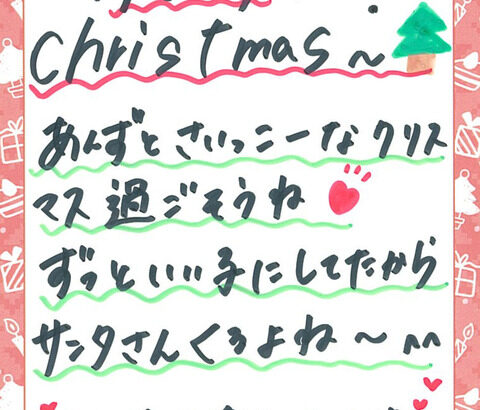 Christmas～
あんずとさいっこーなクリス
マス過ごそうね
ずっといい子にしてたから
サンタさんくるよね～^^